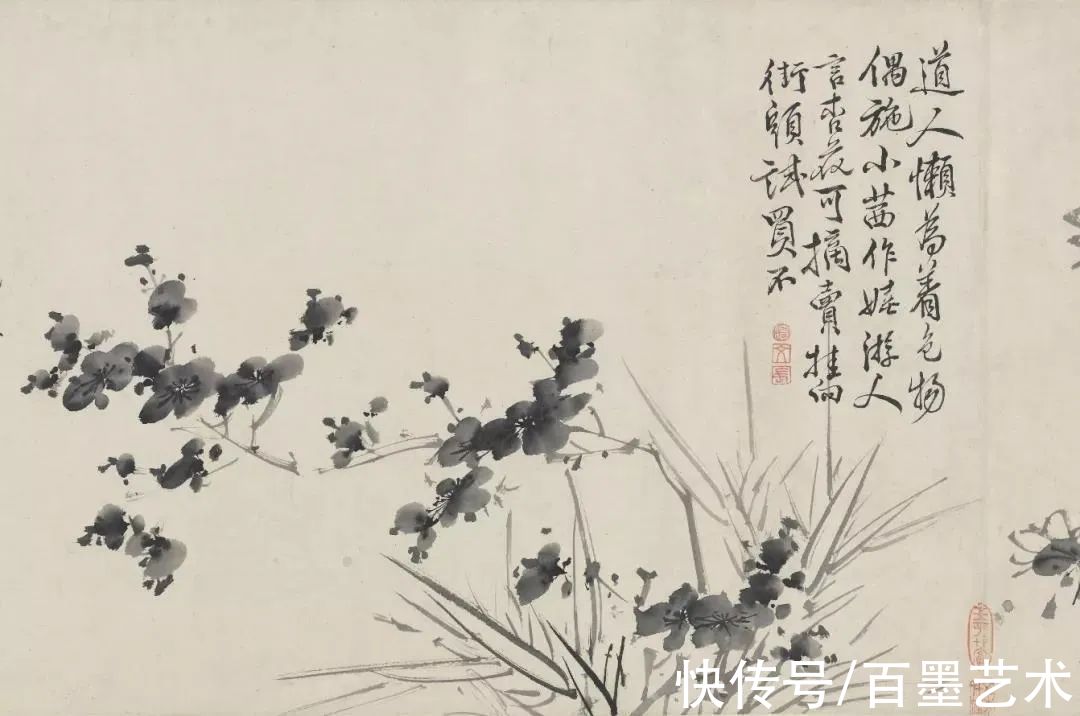 道人懶為着色物
偶施小茜作嬉游人
言杏花可摘賣挂向
街頭試買不
快传号/百墨艺术